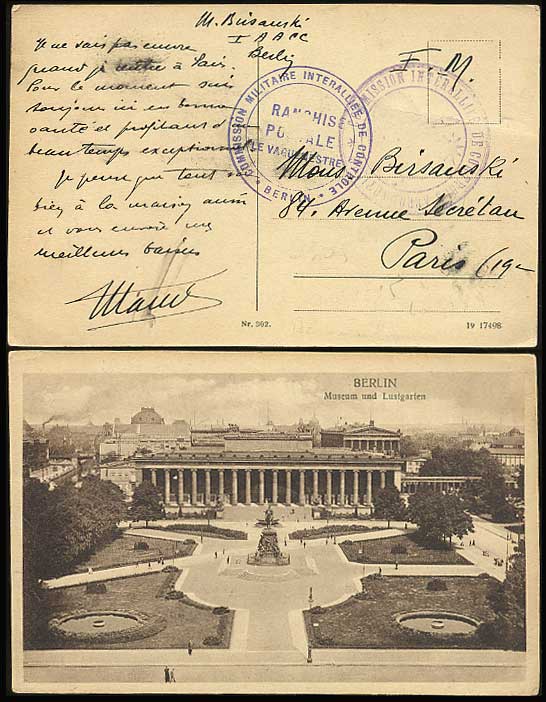 M. Birsanski
I A A C C
Berlin
F. M.
Je ne sais pas encore
quand je rentre à Paris.
Pour le moment suis
toujours ici en bonne
santé et profitant d'
beau temps exceptionnel
Je pense que tout
bien à la maison aussi
et vous envoie mes
meilleurs baisers
COMMISSION MILITAIRE INTERALLIÉE DE CONTRÔLE
* BERLIN *
FRANCHISE
POSTALE
LE VAGUEMESTRE
COMMISSION INTERALLIÉE DE
Mons Birsanski
84. Avenue Secrétan
Paris (19e
Nr. 302.
19 17498
BERLIN
Museum und Lustgarten